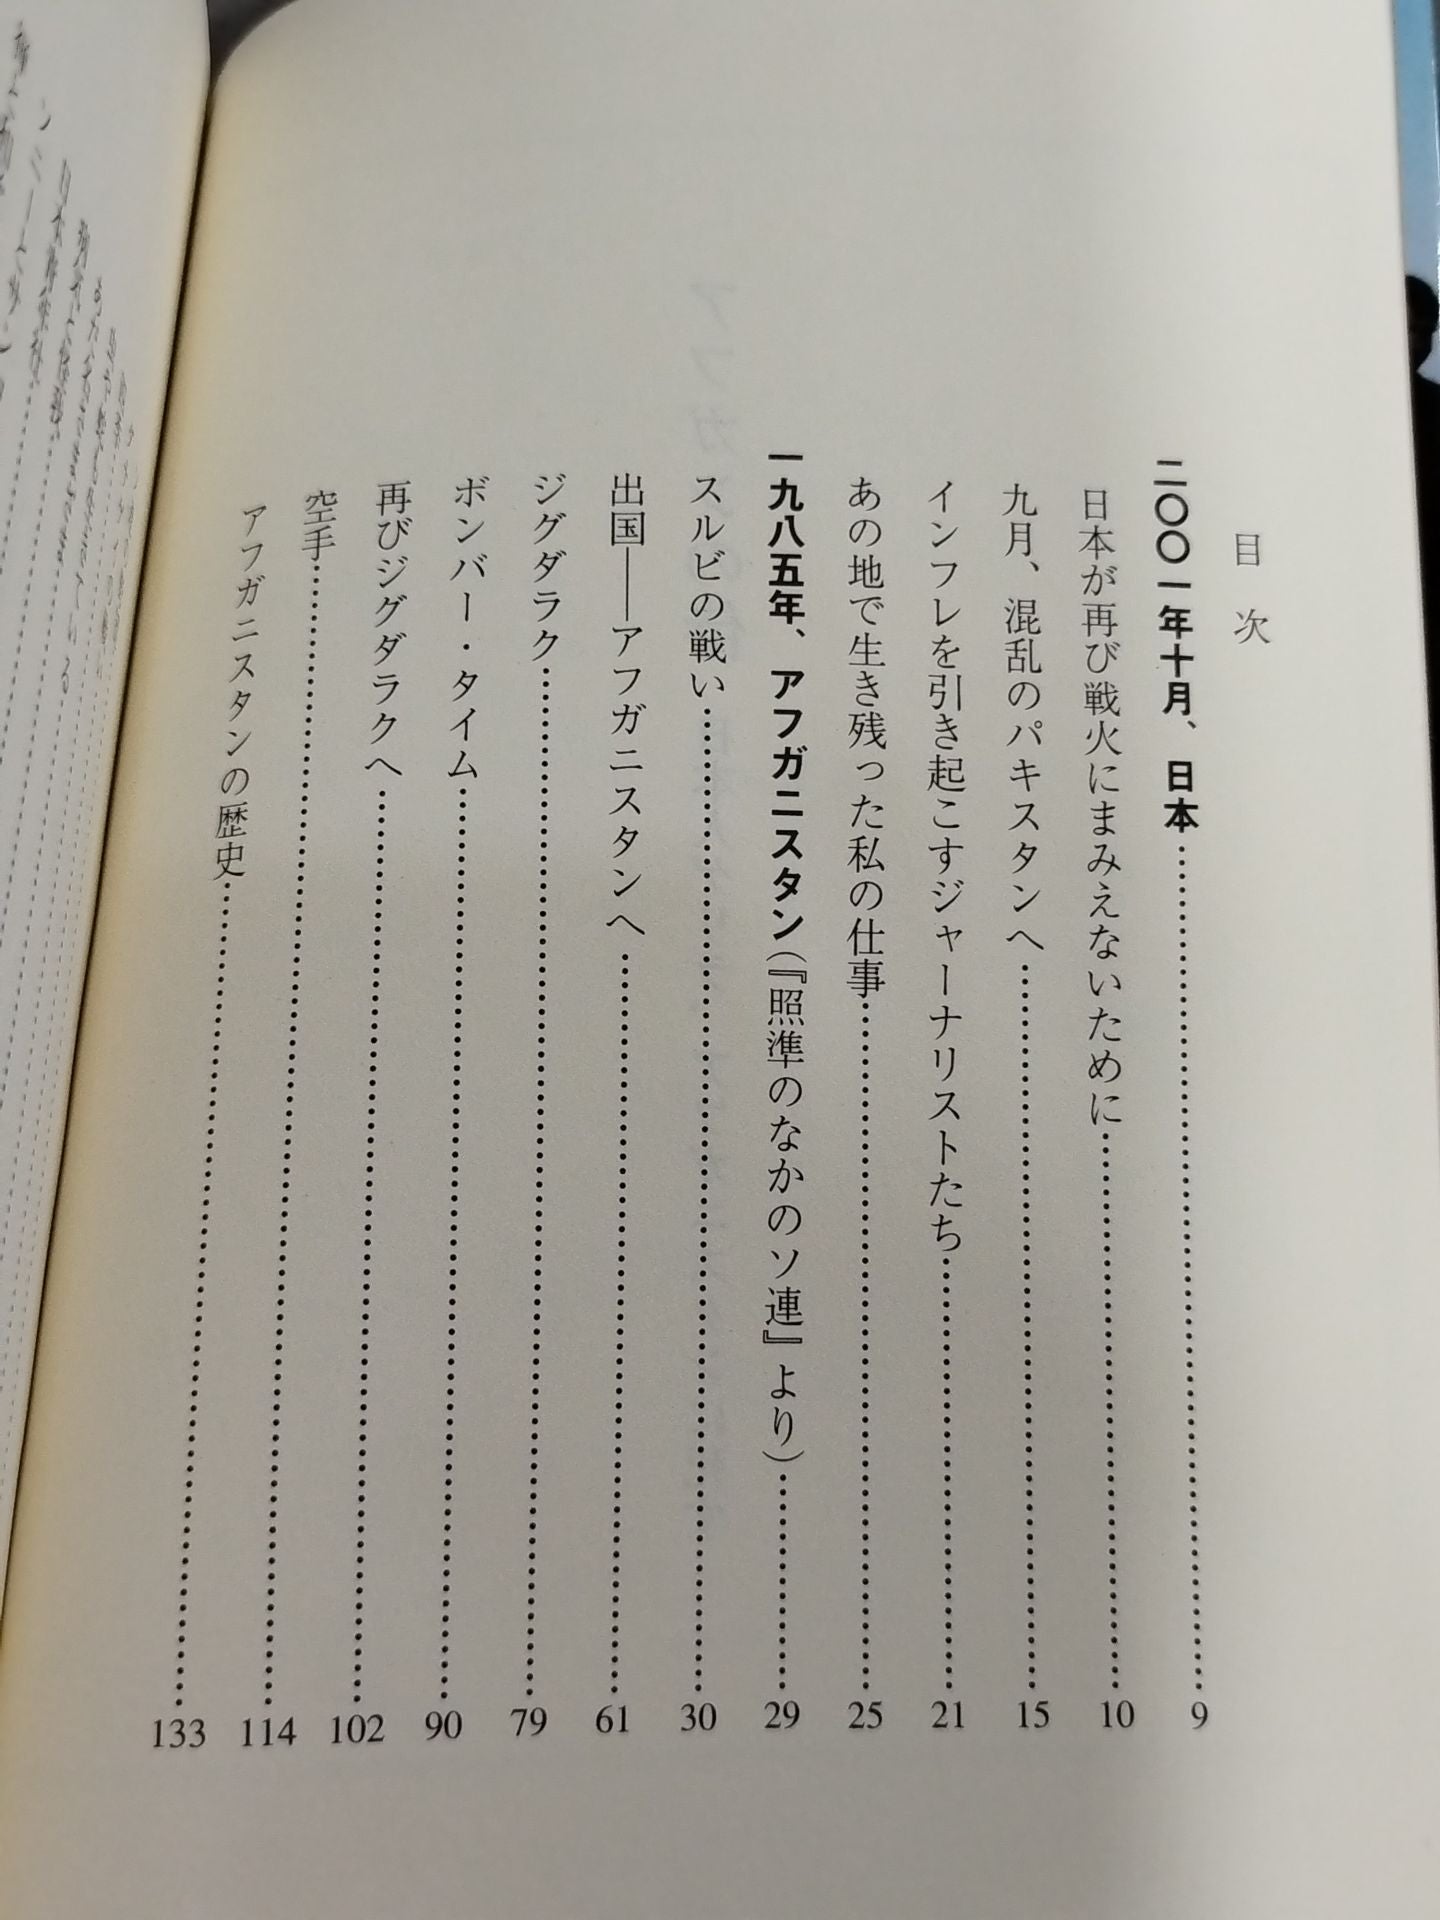 目次
二〇〇一年十月、日本……………………9
日本が再び戦火にまみえないために……………………10
九月、混乱のパキスタンへ……………………15
インフレを引き起こすジャーナリストたち……………………21
あの地で生き残った私の仕事……………………25
一九八五年、アフガニスタン(『照準のなかのソ連』より)……………………29
スルビの戦い……………………30
出国――アフガニスタンへ……………………61
ジグダラク……………………79
ボンバー・タイム……………………90
再びジグダラクへ……………………102
空手……………………114
アフガニスタンの歴史……………………133